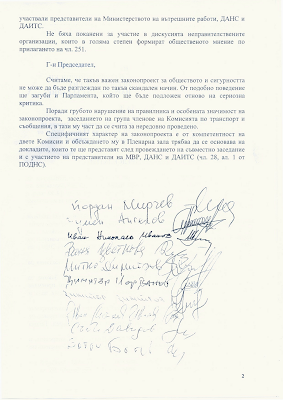 участвали представители на Министерството на вътрешните работи, ДАНС и
ДАИТС.
Не бяха поканени за участие в дискусията неправителствените
организации, които в голяма степен формират общественото мнение по
прилагането на чл. 251.
Г-н Председател,
Считаме, че такъв важен законопроект за обществото и сигурността
не може да бъде разглеждан по такъв скандален начин. От подобно поведение
ще загуби и Парламента, който ще бъде подложен отново на сериозна
критика.
Поради грубото нарушение на правилника и особената значимост на
законопроекта, заседанието на група членове на Комисията по транспорт и
съобщения, в тази му част да се счита за нередовно проведено.
Специфичният характер на законопроекта е от компетентност на
двете Комисии и обсъждането му в Пленарна зала трябва да се основава на
докладите, които те ще представят след провеждането на съвместно заседание
и с участието на представители на МВР, ДАНС и ДАИТС (чл. 28, ал. 1 от
ПОДНС).
Йордан
Ангелов
Иван Николаев Иванов
Митко
Димитър
2